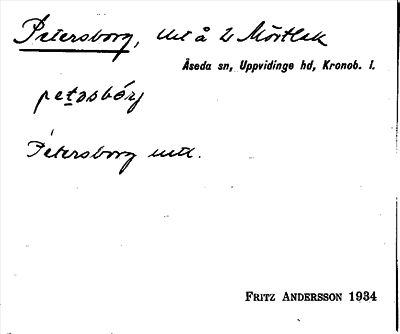 Petersborg, utt å 2 Mörtlek
Åseda sn, Uppvidinge hd, Kronob. l.
petəsbórj
Petersborg
FRITZ ANDERSSON 1934